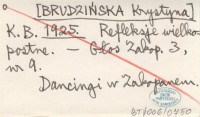 [BRUDZIŃSKA Krystyna]
K.B. 1925. Refleksje wielko-
postne. — Głos Zakop. 3,
nr 9.
Dancingi w Zakopanem.